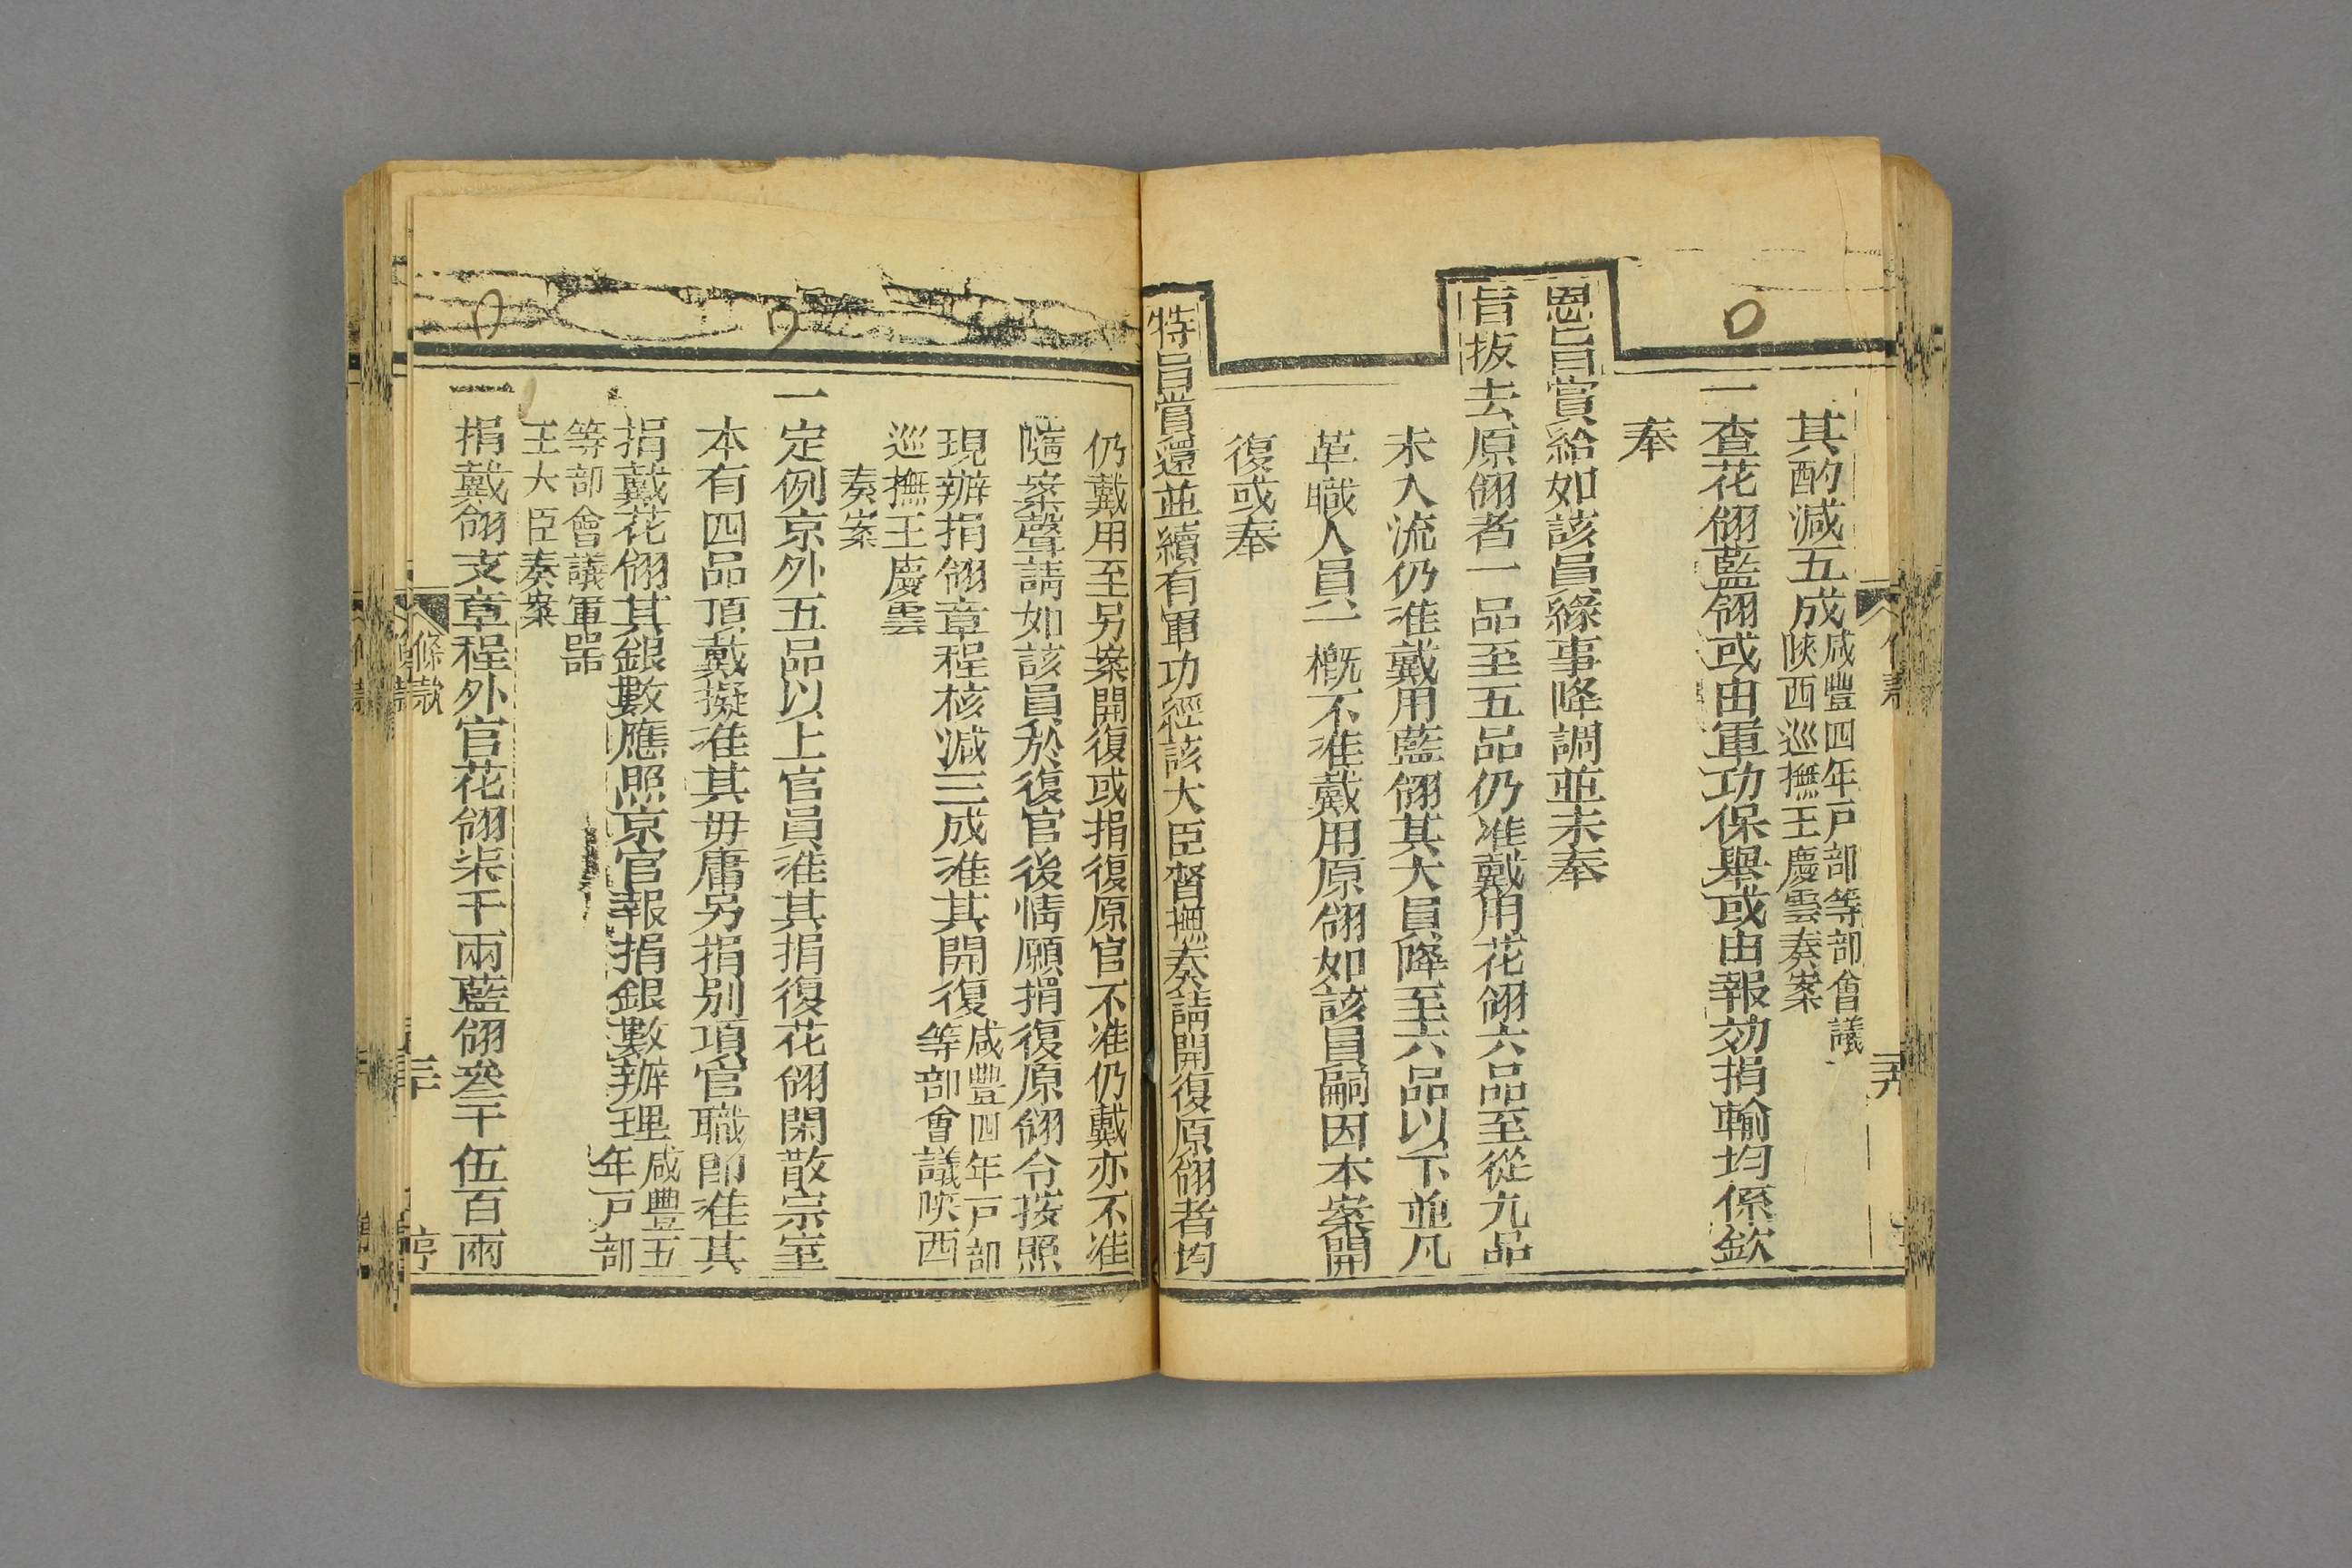 其酌减五成咸豐四年戸部等部會議陝西巡撫王慶雲奏案
一查花翎藍翎或由軍功保舉或由報効捐輸均係欽
奉
恩旨賞給如該員緣事降調並未奉
旨拔去原翎者一品至五品仍准戴用花翎六品至從九品
未入流仍准戴用藍翎其大員降至六品以下並凡
革職人員一概不准戴用原翎如該員嗣因本案開
復或奉
特旨賞還並續有軍功經該大臣督撫奏請開復原翎者均
仍戴用至另案開復或捐復原官不准仍戴亦不准
隨案聲請如該員於復官後情願捐復原翎令按照
現辦捐翎章程核减三成准其開復咸豐四年戸部等部會議陝西
巡撫王慶雲
奏案
一定例京外五品以上官員准其捐復花翎閑散宗室
本有四品頂戴擬准其毋庸另捐别項官職卽准其
捐戴花翎其銀數應照京官報捐銀數辦理咸豐五年戸部
等部會議軍器
王大臣奏案
一捐戴翎支章程外官花翎柒千兩藍翎叁千伍百兩
條款